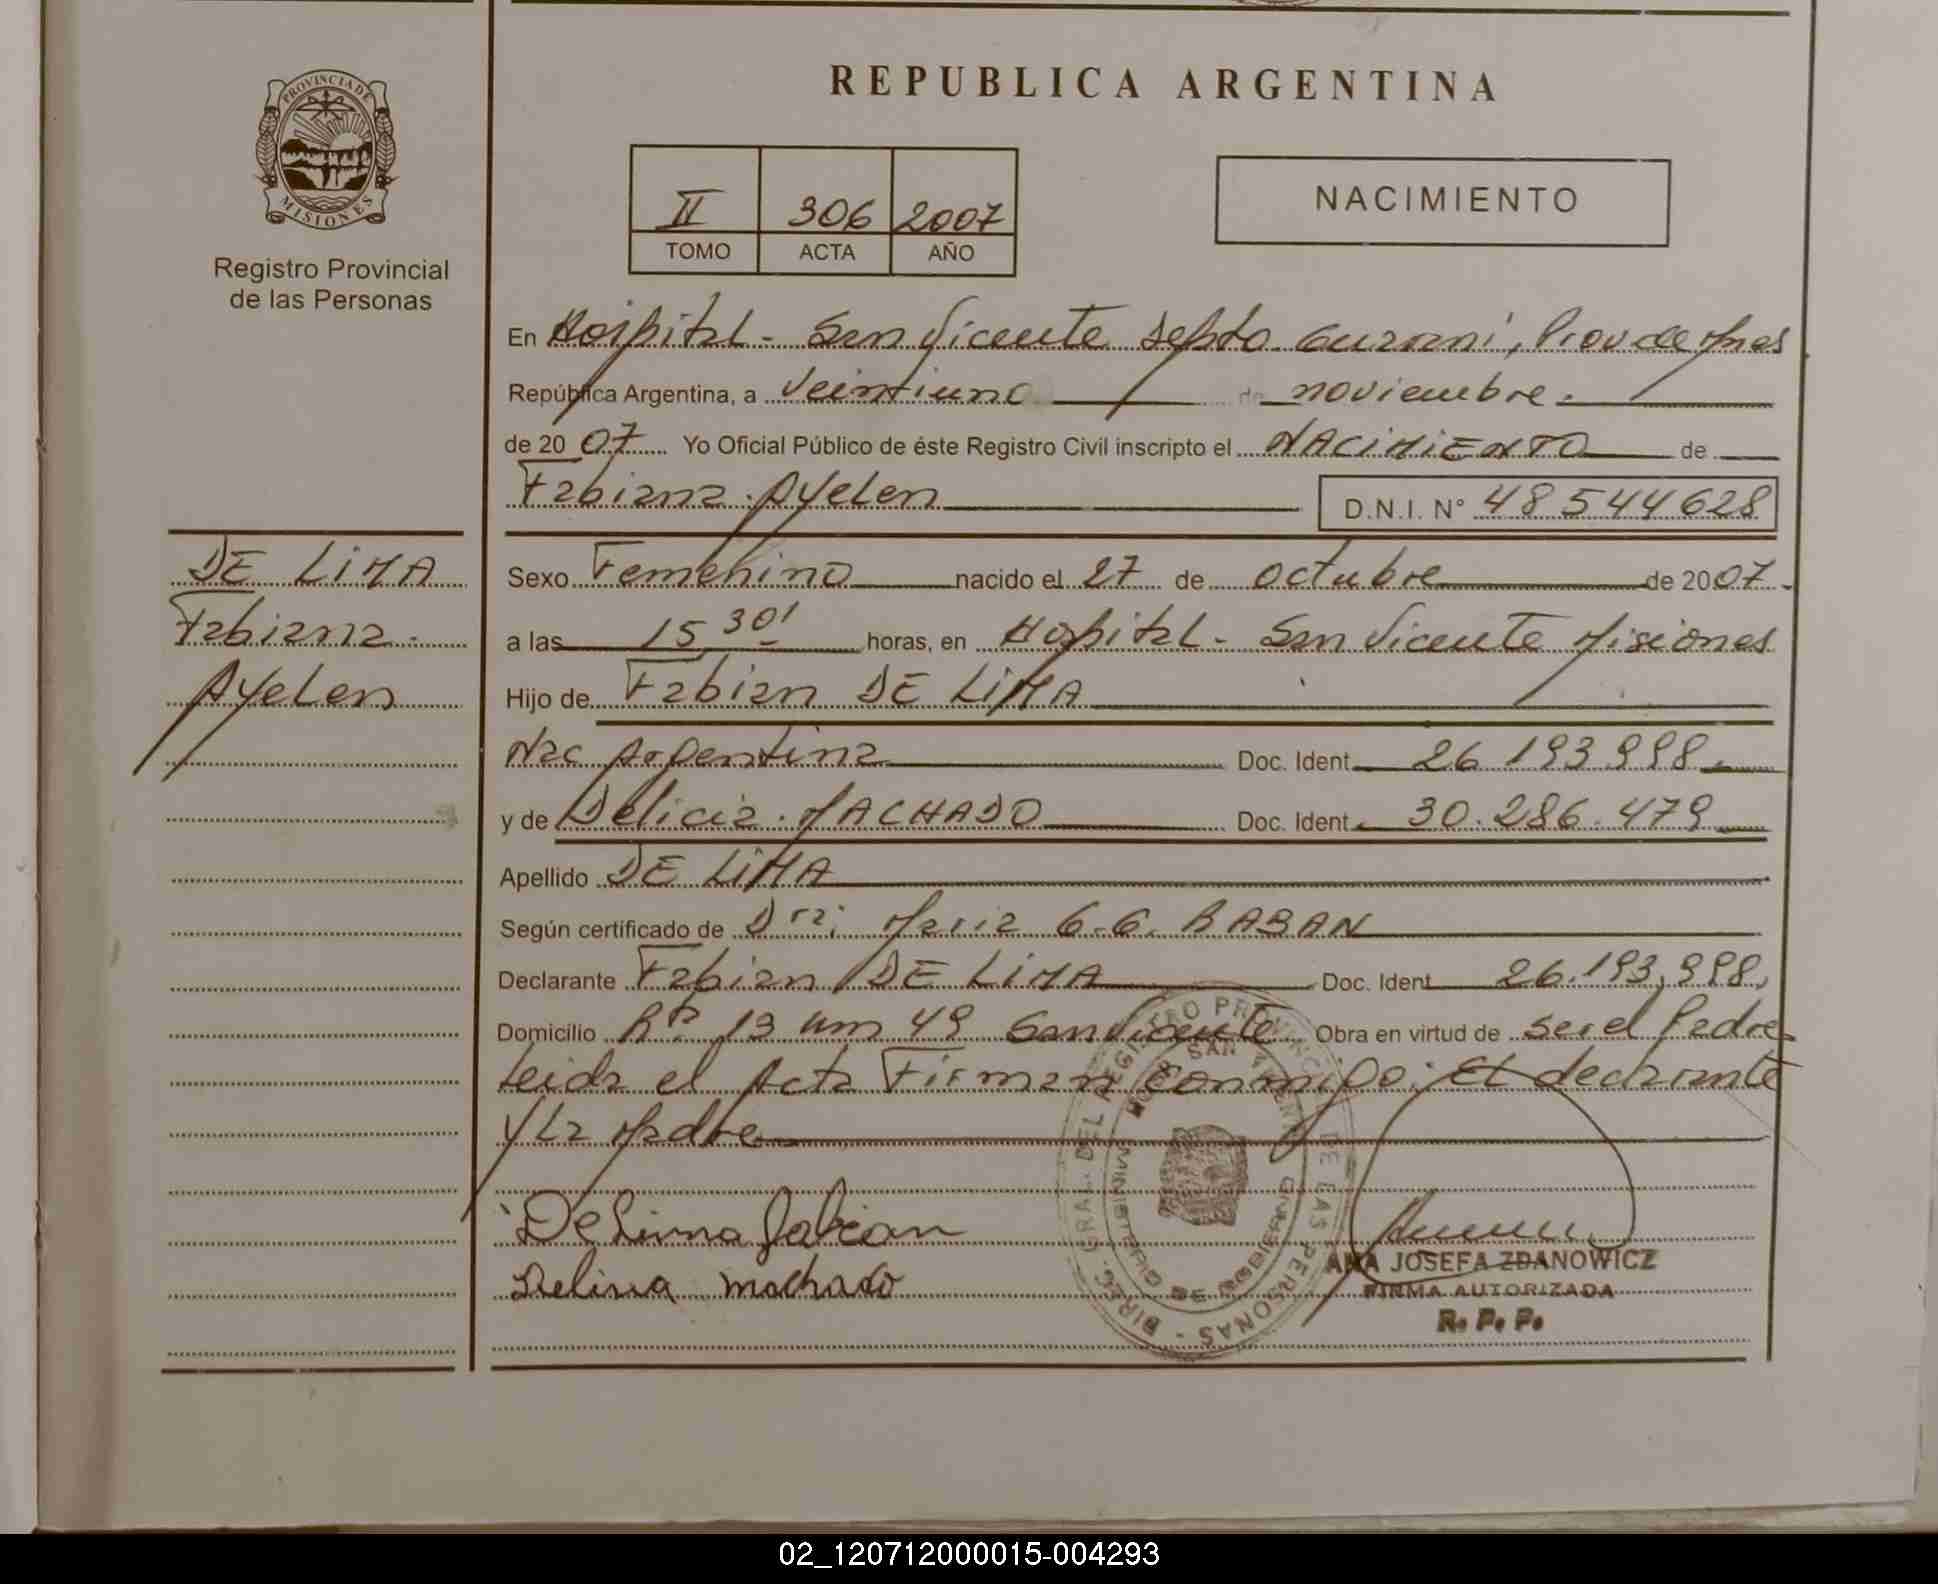 PROVINCIA DE
MISIONES
Registro Provincial
de las Personas
DE LiMA
Fabiana
Ayelen
REPUBLICA ARGENTINA
II 306 2007
TOMO ACTA AÑO
NACIMIENTO
En Hospital - San Vicente Depto Guarani, Prov de Mnes
República Argentina, a veintiuno de noviembre.
de 2007 Yo Oficial Público de éste Registro Civil inscripto el NACiMiENTO de
Fabiana Ayelen D.N.I. N° 48544628
Sexo Femenino nacido el 27 de octubre de 2007
a las 15 30' horas, en Hospital - San Vicente Misiones
Hijo de Fabian DE LiMA
Nac Argentina Doc. Ident. 26.193.998
y de Delicia MACHADO Doc. Ident. 30.286.479
Apellido DE LiMA
Según certificado de Dra: Maria G.G. BABAN
Declarante Fabian DE LiMA Doc. Ident 26.193.998
Domicilio Rta 13 Km 49 San Vicente Obra en virtud de ser el Padre
Leida el Acta Firman conmigo: El declarante
y La Madre
De Lima Fabian
machado
DIREC. GRAL. DEL REGISTRO PROVINCIAL DE LAS PERSONAS
SAN VICENTE
MINISTERIO DE GOBIERNO
ANA JOSEFA ZDANOWICZ
FIRMA AUTORIZADA
R. P. P.
02_120712000015-004293